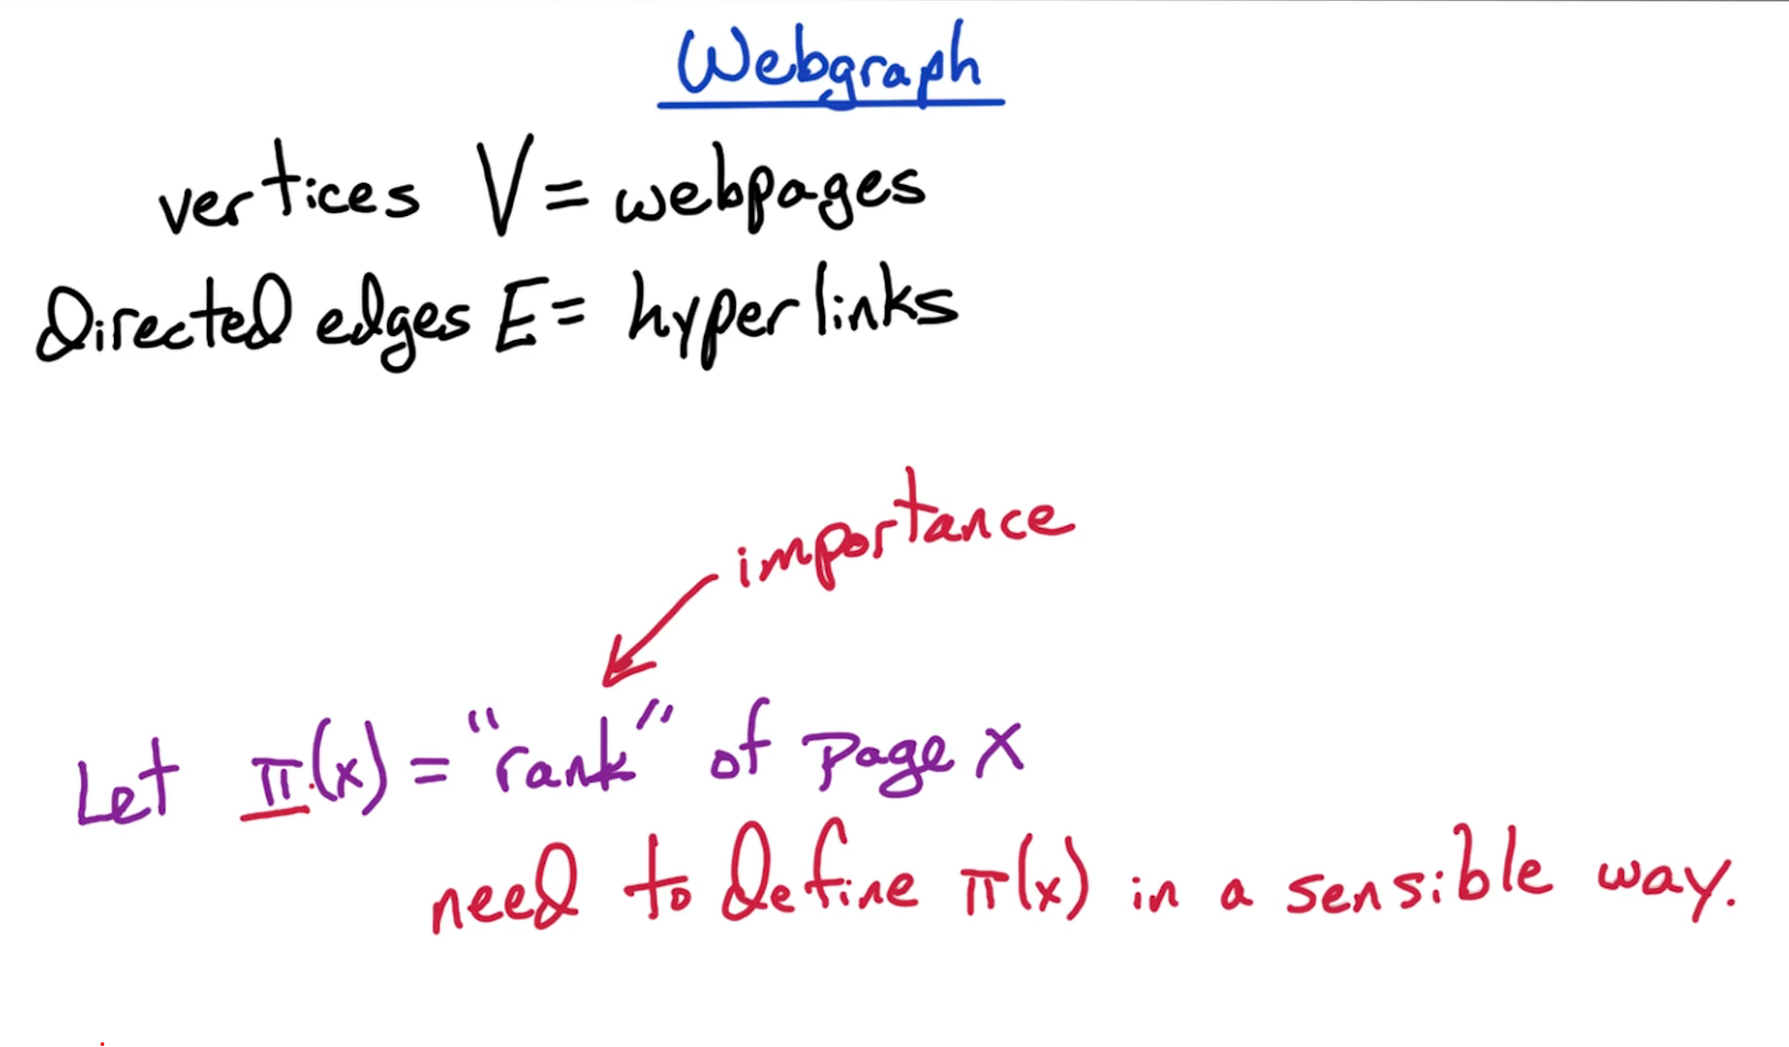 Webgraph
vertices V = webpages
Directed edges E = hyperlinks
importance
Let π(x) = "rank" of page x
need to define π(x) in a sensible way.